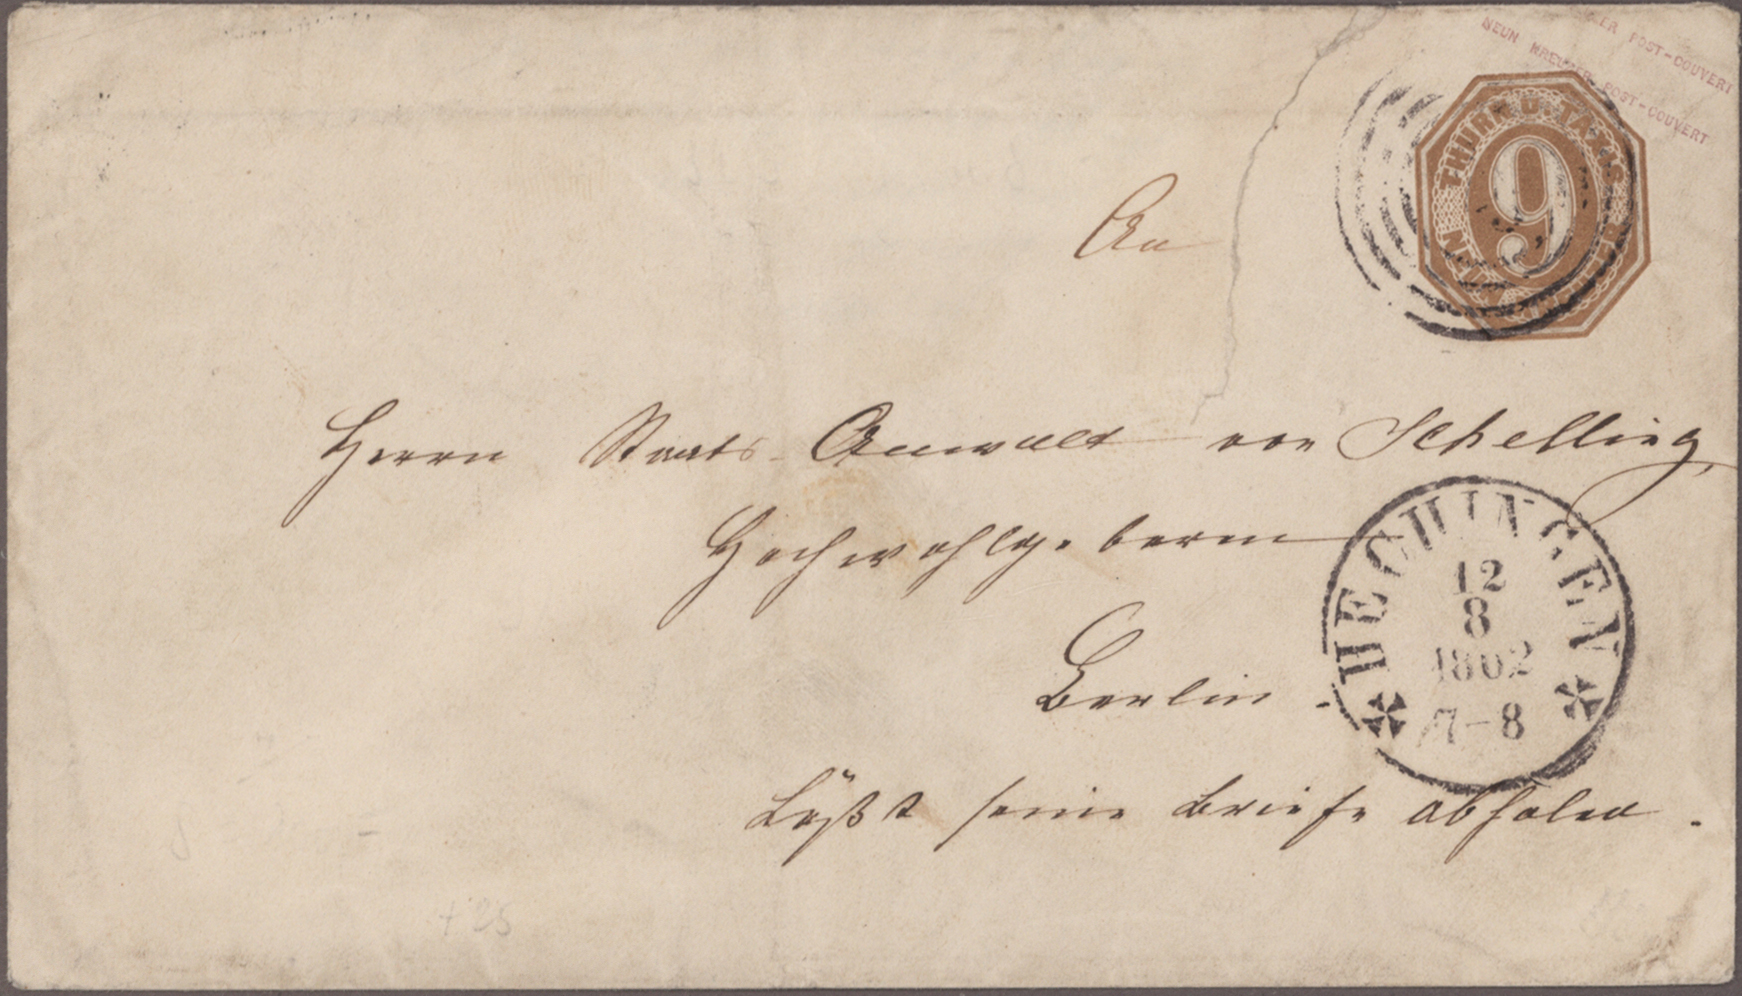 ER POST-COUVERT
NEUN KREUZER POST-COUVERT
THURN U. TAXIS
9
NEUN KREUZER
An
Herrn Staats-Anwalt von Schelling,
Hochwohlgeboren
Berlin.
HECHINGEN
12
8
1862
7-8
Läßt seine Briefe abholen.
+ 25